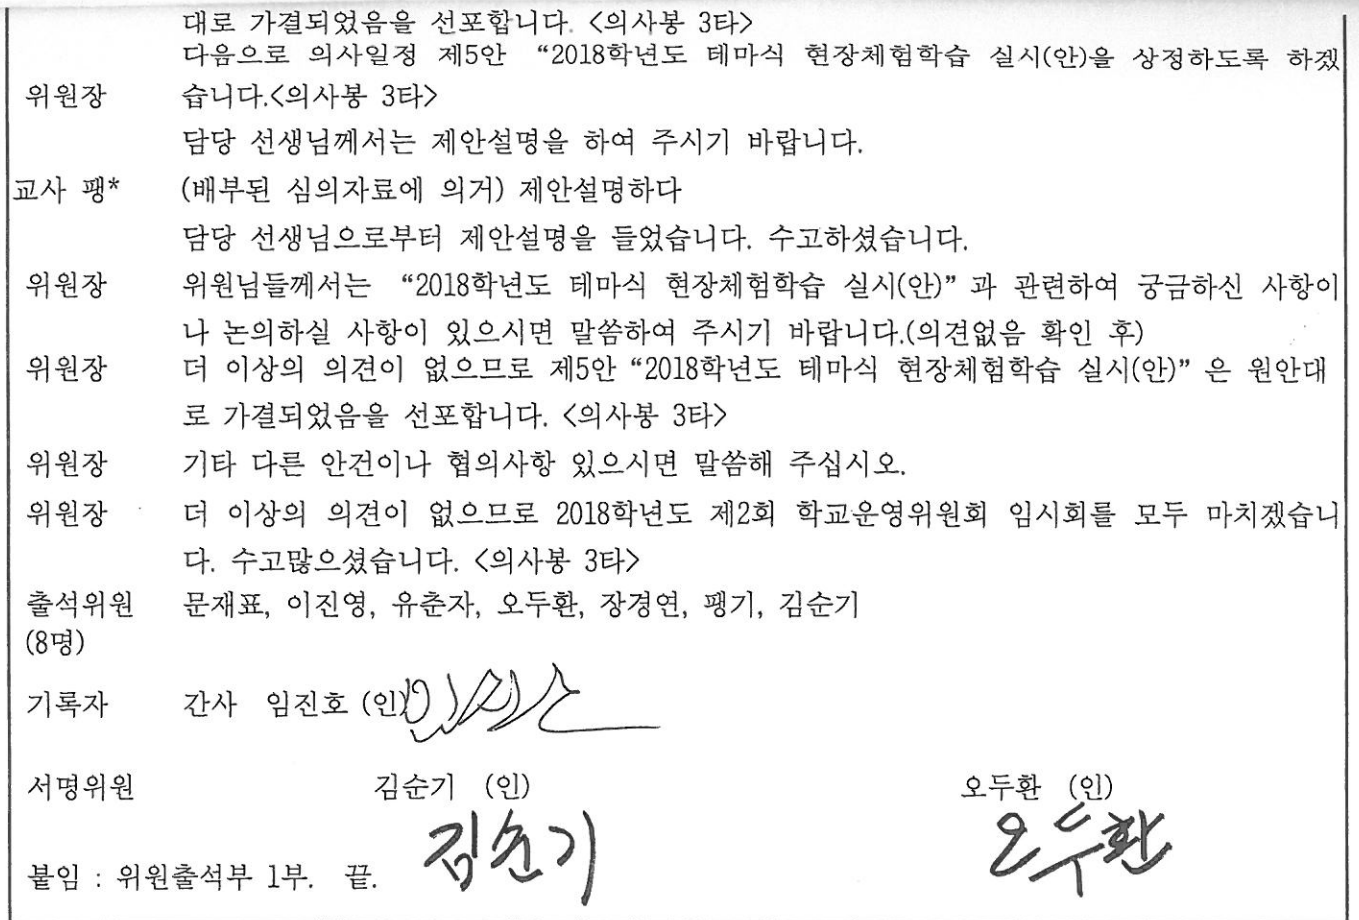 대로 가결되었음을 선포합니다. <의사봉 3타>
다음으로 의사일정 제5안 “2018학년도 테마식 현장체험학습 실시(안)을 상정하도록 하겠
위원장 습니다.<의사봉 3타>
담당 선생님께서는 제안설명을 하여 주시기 바랍니다.
교사 팽* (배부된 심의자료에 의거) 제안설명하다
담당 선생님으로부터 제안설명을 들었습니다. 수고하셨습니다.
위원장 위원님들께서는 “2018학년도 테마식 현장체험학습 실시(안)” 과 관련하여 궁금하신 사항이
나 논의하실 사항이 있으시면 말씀하여 주시기 바랍니다.(의견없음 확인 후)
위원장 더 이상의 의견이 없으므로 제5안 “2018학년도 테마식 현장체험학습 실시(안)” 은 원안대
로 가결되었음을 선포합니다. <의사봉 3타>
위원장 기타 다른 안건이나 협의사항 있으시면 말씀해 주십시오.
위원장 더 이상의 의견이 없으므로 2018학년도 제2회 학교운영위원회 임시회를 모두 마치겠습니
다. 수고많으셨습니다. <의사봉 3타>
출석위원 문재표, 이진영, 유춘자, 오두환, 장경연, 팽기, 김순기
(8명)
기록자 간사 임진호 (인)
서명위원 김순기 (인) 오두환 (인)
김순기 오두환
붙임 : 위원출석부 1부. 끝.